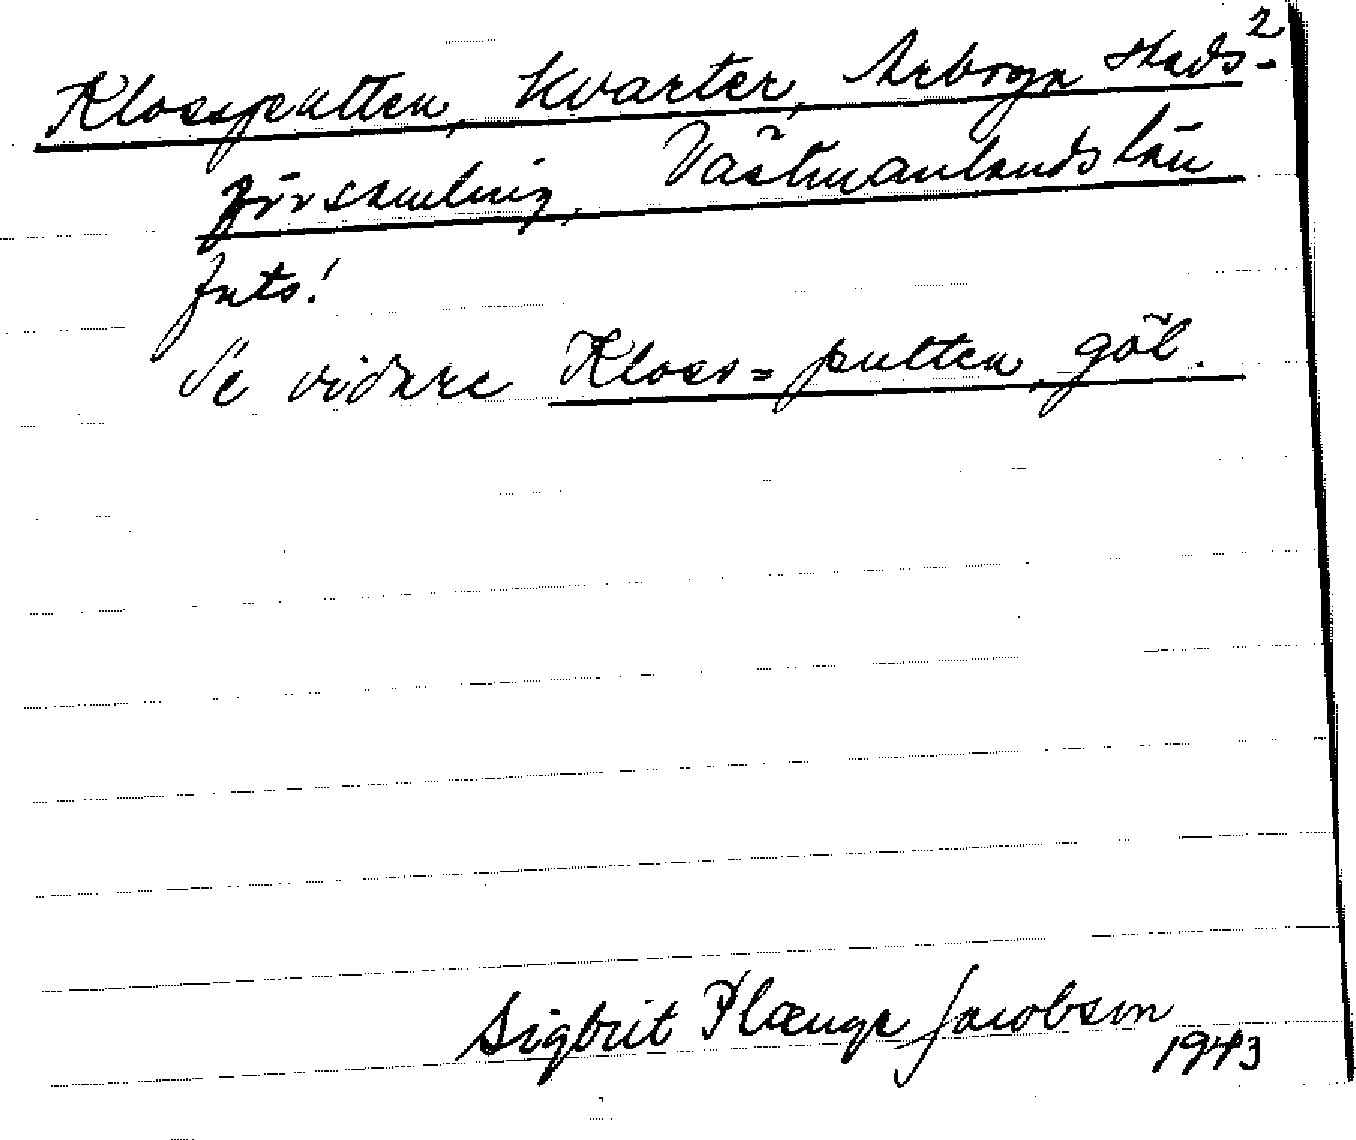 2
Klossputten, kvarter, Arboga stads-
församling, Västmanlands län
Foto!
Se vidare Kloss=putten, göl.
Sigbrit Plænge Jacobson
1943